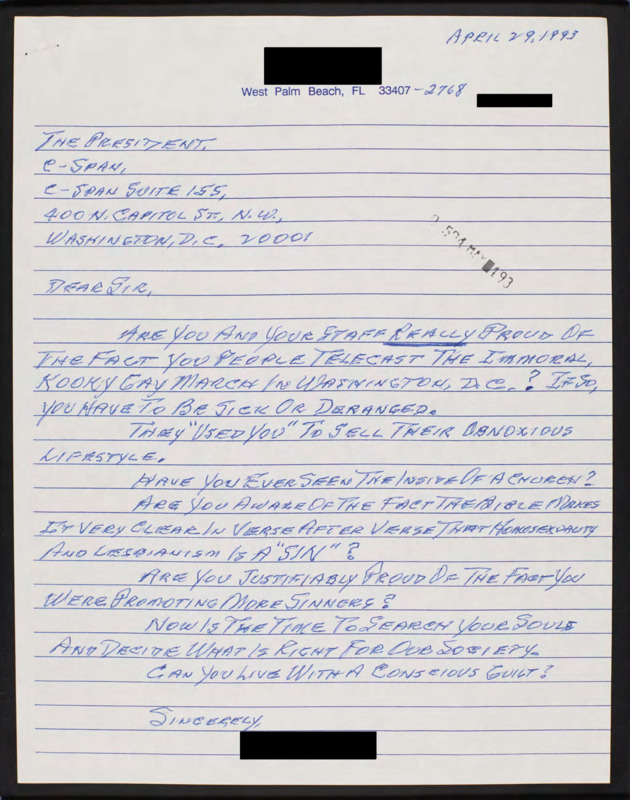 APRIL 29, 1993
West Palm Beach, FL 33407-2768
THE PRESIDENT,
C-SPAN,
C-SPAN SUITE 155,
400 N. CAPITOL ST., N.W.,
WASHINGTON, D.C. 20001
DEAR SIR,
ARE YOU AND YOUR STAFF REALLY PROUD OF
THE FACT YOU PEOPLE TELECAST THE IMMORAL,
KOOKY GAY MARCH IN WASHINGTON, D.C.? IF SO,
YOU HAVE TO BE SICK OR DERANGED.
THEY "USED YOU" TO SELL THEIR OBNOXIOUS
LIFESTYLE.
HAVE YOU EVER SEEN THE INSITE OF A CHURCH?
ARE YOU AWARE OF THE FACT THE BIBLE MAKES
IT VERY CLEAR IN VERSE AFTER VERSE THAT HOMOSEXUALITY
AND LESBIANISM IS A "SIN"?
ARE YOU JUSTIFIABLY PROUD OF THE FACT YOU
WERE PROMOTING MORE SINNERS?
NOW IS THE TIME TO SEARCH YOUR SOULS
AND DECIDE WHAT IS RIGHT FOR OUR SOCIETY.
CAN YOU LIVE WITH A CONSCIOUS GUILT?
SINCERELY,